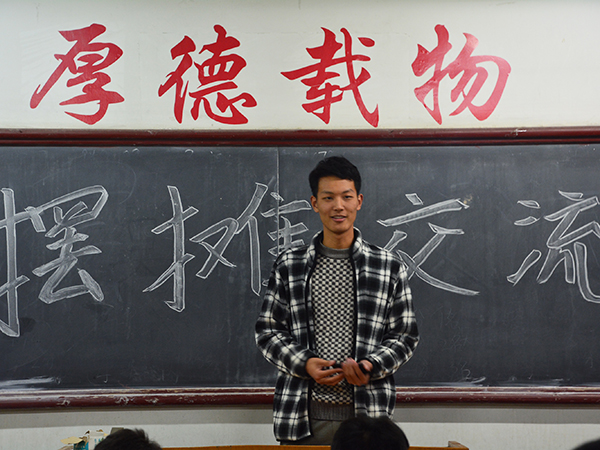 厚德载物
摆摊交流